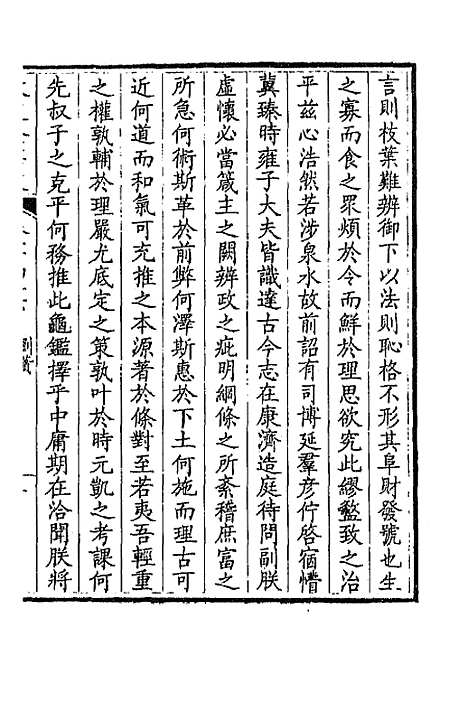 言則枝葉難辨御下以法則恥格不形其阜財發號也生
之寡而食之眾煩於令而鮮於理思欲究此繆盭致之治
平兹心浩然若涉泉水故前詔有司博延羣彦佇啓宿懵
冀臻時雍子大夫皆識達古今志在康濟造庭待問副朕
虛懷必當箴主之闕辨政之疵明綱條之所紊稽庶富之
所急何術斯革於前弊何澤斯惠於下土何施而理古可
近何道而和氣可充推之本源著於條對至若夷吾輕重
之權孰輔於理嚴尤底定之策孰叶於時元凱之考課何
先叔子之克平何務推此龜鑑擇乎中庸期在洽聞朕將
劉蕡